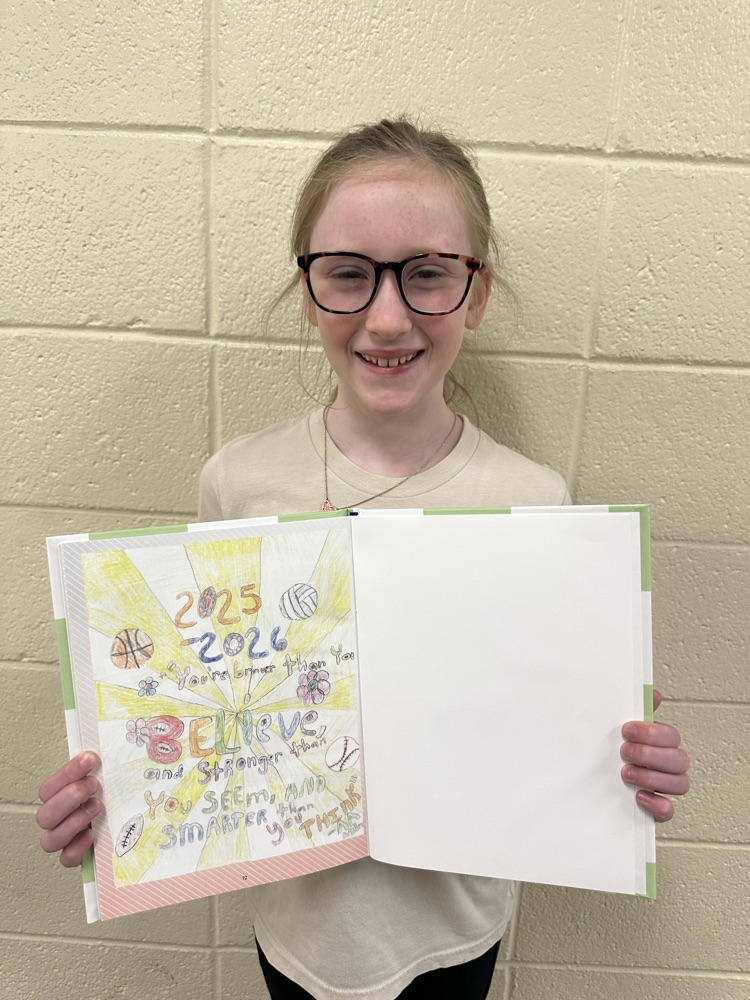 2025
-2026
"You're braver than You
BELIEVE,
and Stronger than
You SEEM, AND
SMARTER than
you THINK"
12